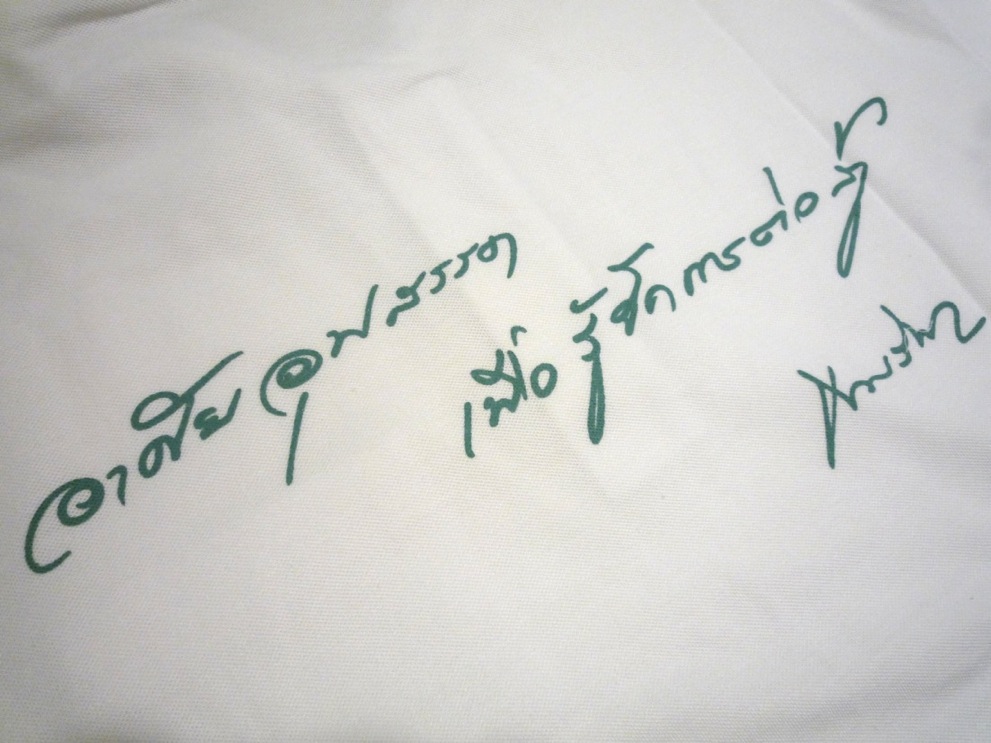 อาศัย อุปสรรค
เพื่อ รู้จักการต่อสู้